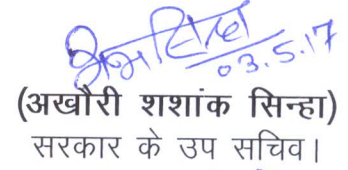 03.5.17
(अखौरी शशांक सिन्हा)
सरकार के उप सचिव।